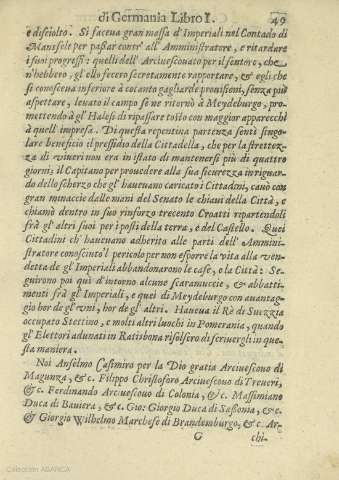 di Germania Libro I. 49
è disciolto. Si faceua gran mossa d'Imperiali nel Contado di
Mansfele per passar contr' all' Amministratore, e ritardare
i suoi progressi: quelli dell' Arciuescouato per il sentore, che
n'hebbero, gl'ello fecero secretamente rapportare, & egli che
si conosceua inferiore à cotanto gagliarde prouisioni, senza più
aspettare, leuato il campo se ne ritornò à Meydeburgo, pro-
mettendo à gl' Halesi di ripassare tosto con maggior apparecchi
à quell' impresa. Di questa repentina partenza sentì singo-
lare beneficio il pressidio della Cittadella, che per la strettez-
za di viueri non era in istato di mantenersi più di quattro
giorni; il Capitano per prouedere alla sua securezza in riguar-
do dello scherzo che gl' haueuano caricato i Cittadini, cauò con
gran minaccie dalle mani del Senato le chiaui della Città, e
chiamò dentro in suo rinforzo trecento Croatti repartendoli
frà gl' altri suoi per i posti della terra, e del Castello. Quei
Cittadini ch' haueuano adherito alle parti dell' Ammini-
stratore conosciuto'l pericolo per non esporre la vita alla ven-
detta de gl' Imperiali abbandonarono le case, e la Città: Se-
guirono poi quì d'intorno alcune scaramuccie, & abbatti-
menti frà gl' Imperiali, e quei di Meydeburgo con auantag-
gio hor de gl' vni, hor de gl' altri. Haueua il Rè di Suezzia
occupato Stettino, e molti altri luochi in Pomerania, quando
gl' Elettori adunati in Ratisbona risolsero di scriuergli in que-
sta maniera.
Noi Anselmo Casimiro per la Dio gratia Arciuescouo di
Magunza, &c. Filippo Christoforo Arciuescouo di Treueri,
&c. Ferdinando Arciuescouo di Colonia, &c. Massimiano
Duca di Bauiera, &c. Gio: Giorgio Duca di Sassonia, &c.
& Giorgio Wilhelmo Marchese di Brandemburgo, &c. Ar-
G chi-
Colección ABANCA